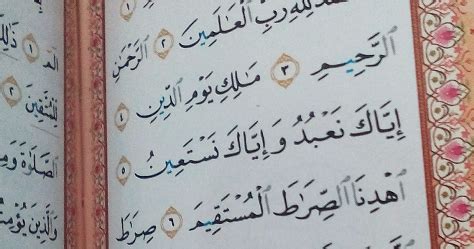 لِلَّهِ رَبِّ الْعَالَمِينَ ٢ الرَّحْمَٰنِ
الرَّحِيمِ ٣ مَالِكِ يَوْمِ الدِّينِ ٤
إِيَّاكَ نَعْبُدُ وَإِيَّاكَ نَسْتَعِينُ ٥
اهْدِنَا الصِّرَاطَ الْمُسْتَقِيمَ ٦ صِرَاطَ
الم ١ ذَٰلِكَ
لِلْمُتَّقِينَ ٢
الصَّلَاةَ
وَالَّذِينَ يُؤْمِنُو